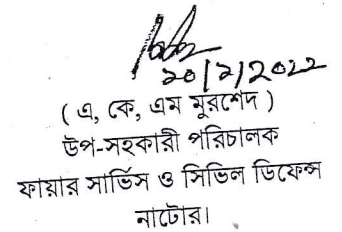 ২০/২/2022
( এ, কে, এম মুরশেদ )
উপ-সহকারী পরিচালক
ফায়ার সার্ভিস ও সিভিল ডিফেন্স
নাটোর।